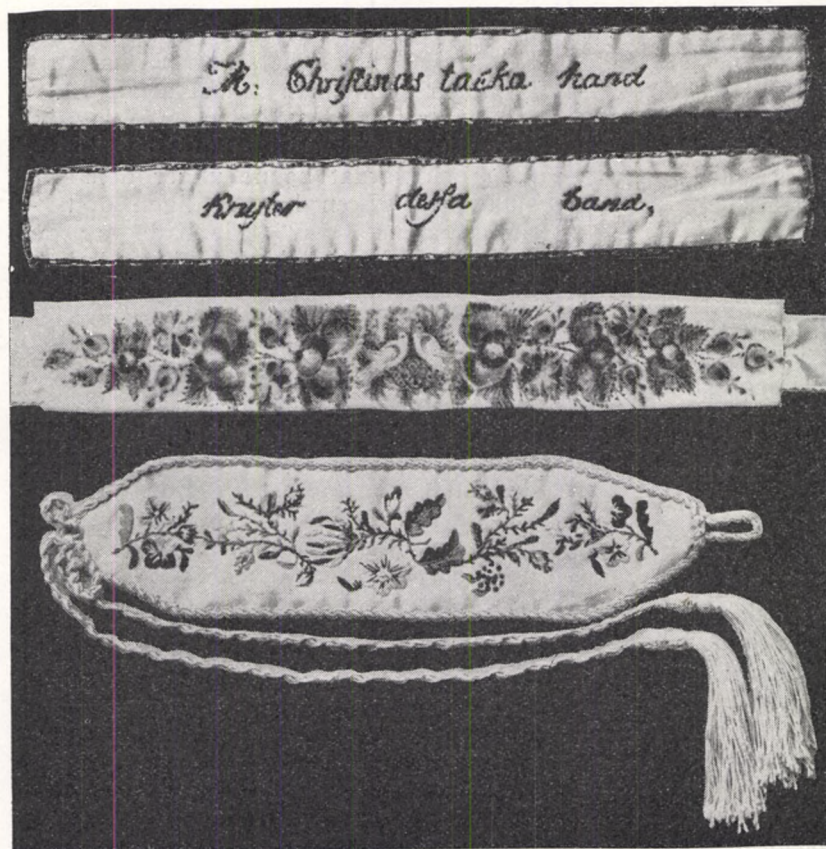 M: Chriſtinas täcka hand
Knyter deſsa band,